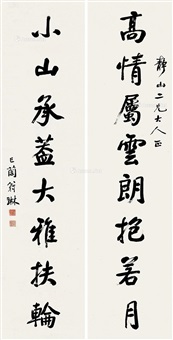 靜山二兄大人正
高情屬雲朗抱若月
小山承蓋大雅扶輪